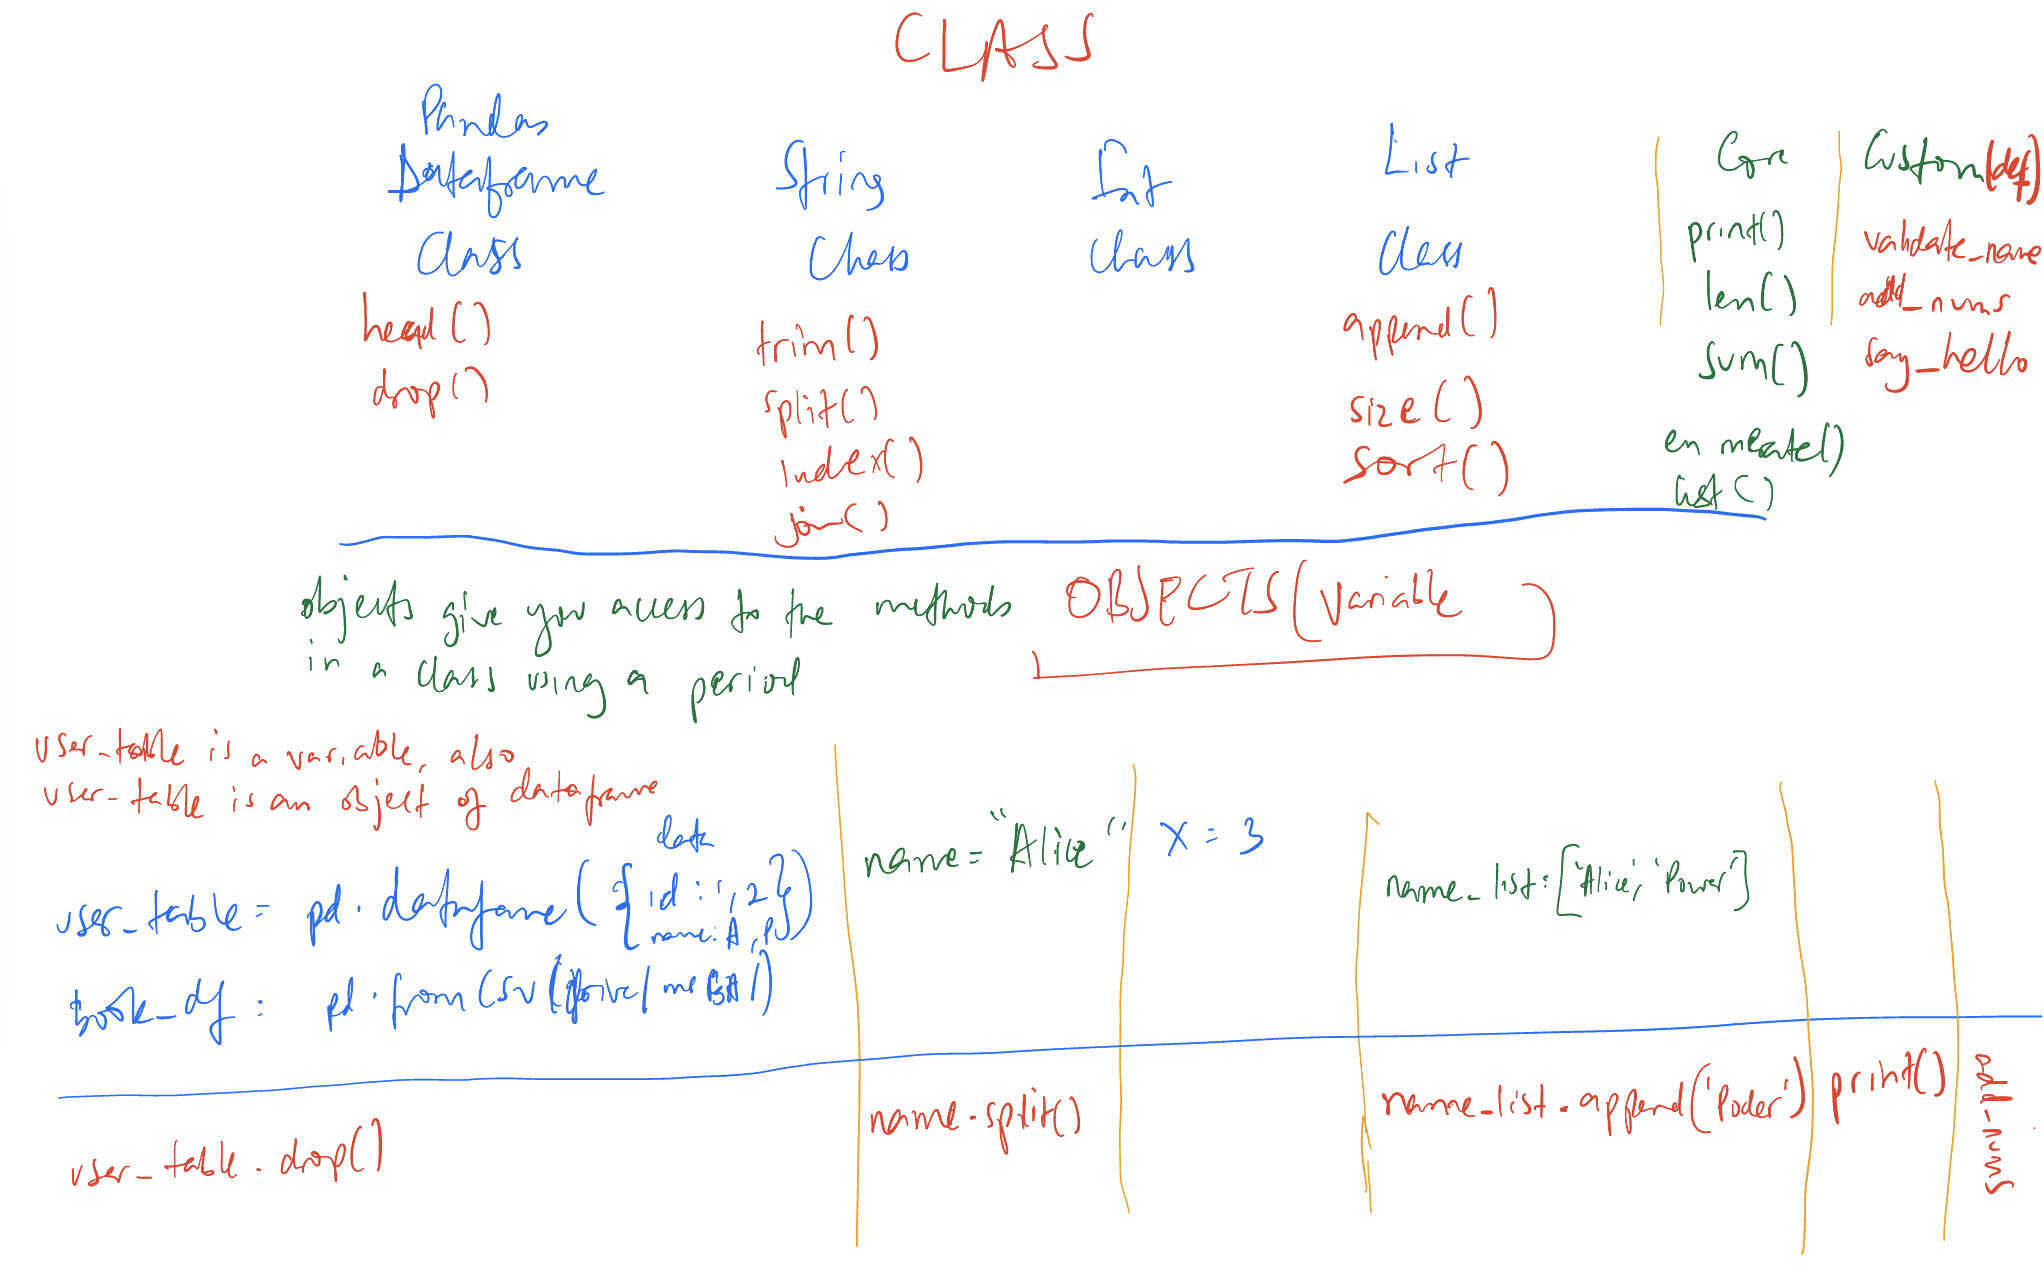 CLASS
Pandas
Dataframe
Class
head()
drop()
String
Class
trim()
split()
index()
join()
Int
Class
List
Class
append()
size()
sort()
Core
print()
len()
sum()
enmeate()
list()
Custom(def)
validate_name
add_nums
say_hello
objects give you access to the methods
in a class using a period
OBJECTS(variable
user_table is a variable, also
user_table is an object of dataframe
data
user_table = pd.dataframe({id:1,2}
name:A,P})
book_df = pd.fromCSV(
name="Alice"
x=3
name_list=['Alice','Power']
user_table.drop()
name.split()
name_list.append('Poder')
print()
add_nums